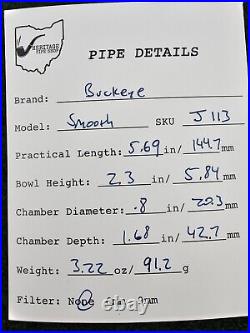 HERITAGE
PIPE SHOP
PIPE DETAILS
Brand: Buckeye
Model: Smooth SKU J113
Practical Length: 5.69 in/ 144.7 mm
Bowl Height: 2.3 in/ 5.84 mm
Chamber Diameter: .8 in/ 20.3 mm
Chamber Depth: 1.68 in/ 42.7 mm
Weight: 3.22 oz/ 91.2 g
Filter: None 9mm